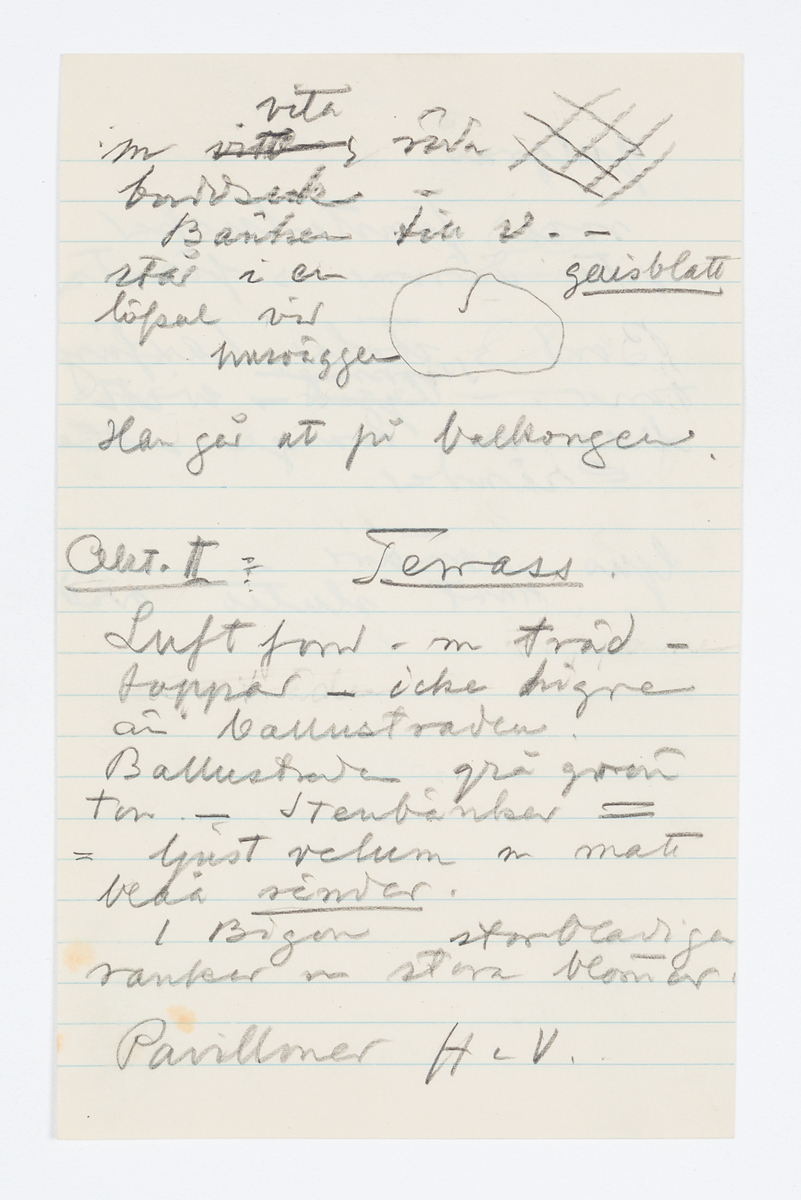 vita
m röda
bordsek –
Bänken till V. –
står i en geisblatt
löfsal vid
husväggen
Han går ut på balkongen.
Akt. II: Terrass.
Luft fond – m träd –
toppar – icke högre
än ballustraden.
Ballustraden grå grön
ton. – Stenbänker =
= ljust velum m matt
blåa ränder.
I Bågen storbladiga
rankor m stora blommor.
Pavilloner H – V.